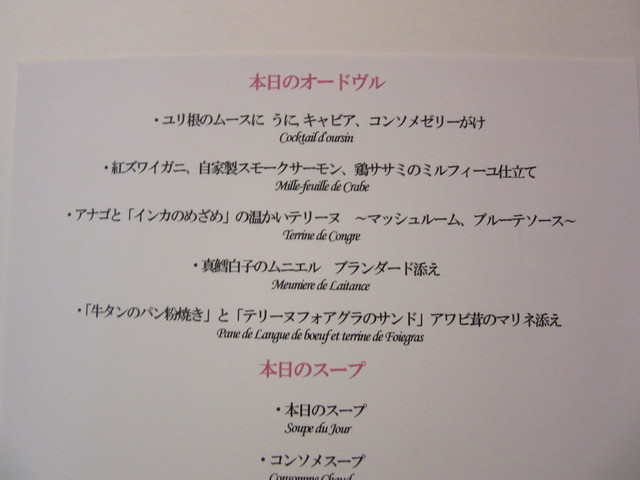 本日のオードヴル
・ユリ根のムースに うに,キャビア、コンソメゼリーがけ
Cocktail d'oursin
・紅ズワイガニ、自家製スモークサーモン、鶏ササミのミルフィーユ仕立て
Mille-feuille de Crabe
・アナゴと「インカのめざめ」の温かいテリーヌ ～マッシュルーム、ブルーテソース～
Terrine de Congre
・真鱈白子のムニエル ブランダード添え
Meuniere de Laitance
・「牛タンのパン粉焼き」と「テリーヌフォアグラのサンド」アワビ茸のマリネ添え
Pane de Langue de boeuf et terrine de Foiegras
本日のスープ
・本日のスープ
Soupe du Jour
・コンソメスープ
Consomme Chaud